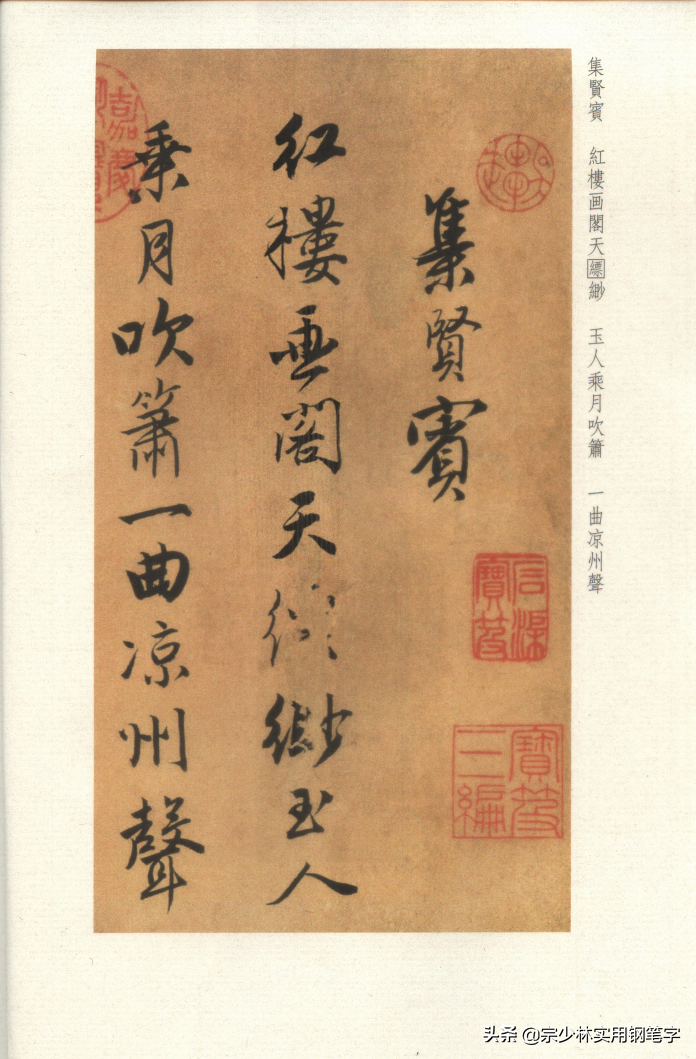 集賢賓 紅樓画閣天縹緲 玉人乘月吹簫 一曲凉州聲
集賢賓
紅樓画閣天緲玉人
乘月吹簫一曲凉州聲
寶笈
三編
嘉慶
头条 @宗少林实用钢笔字